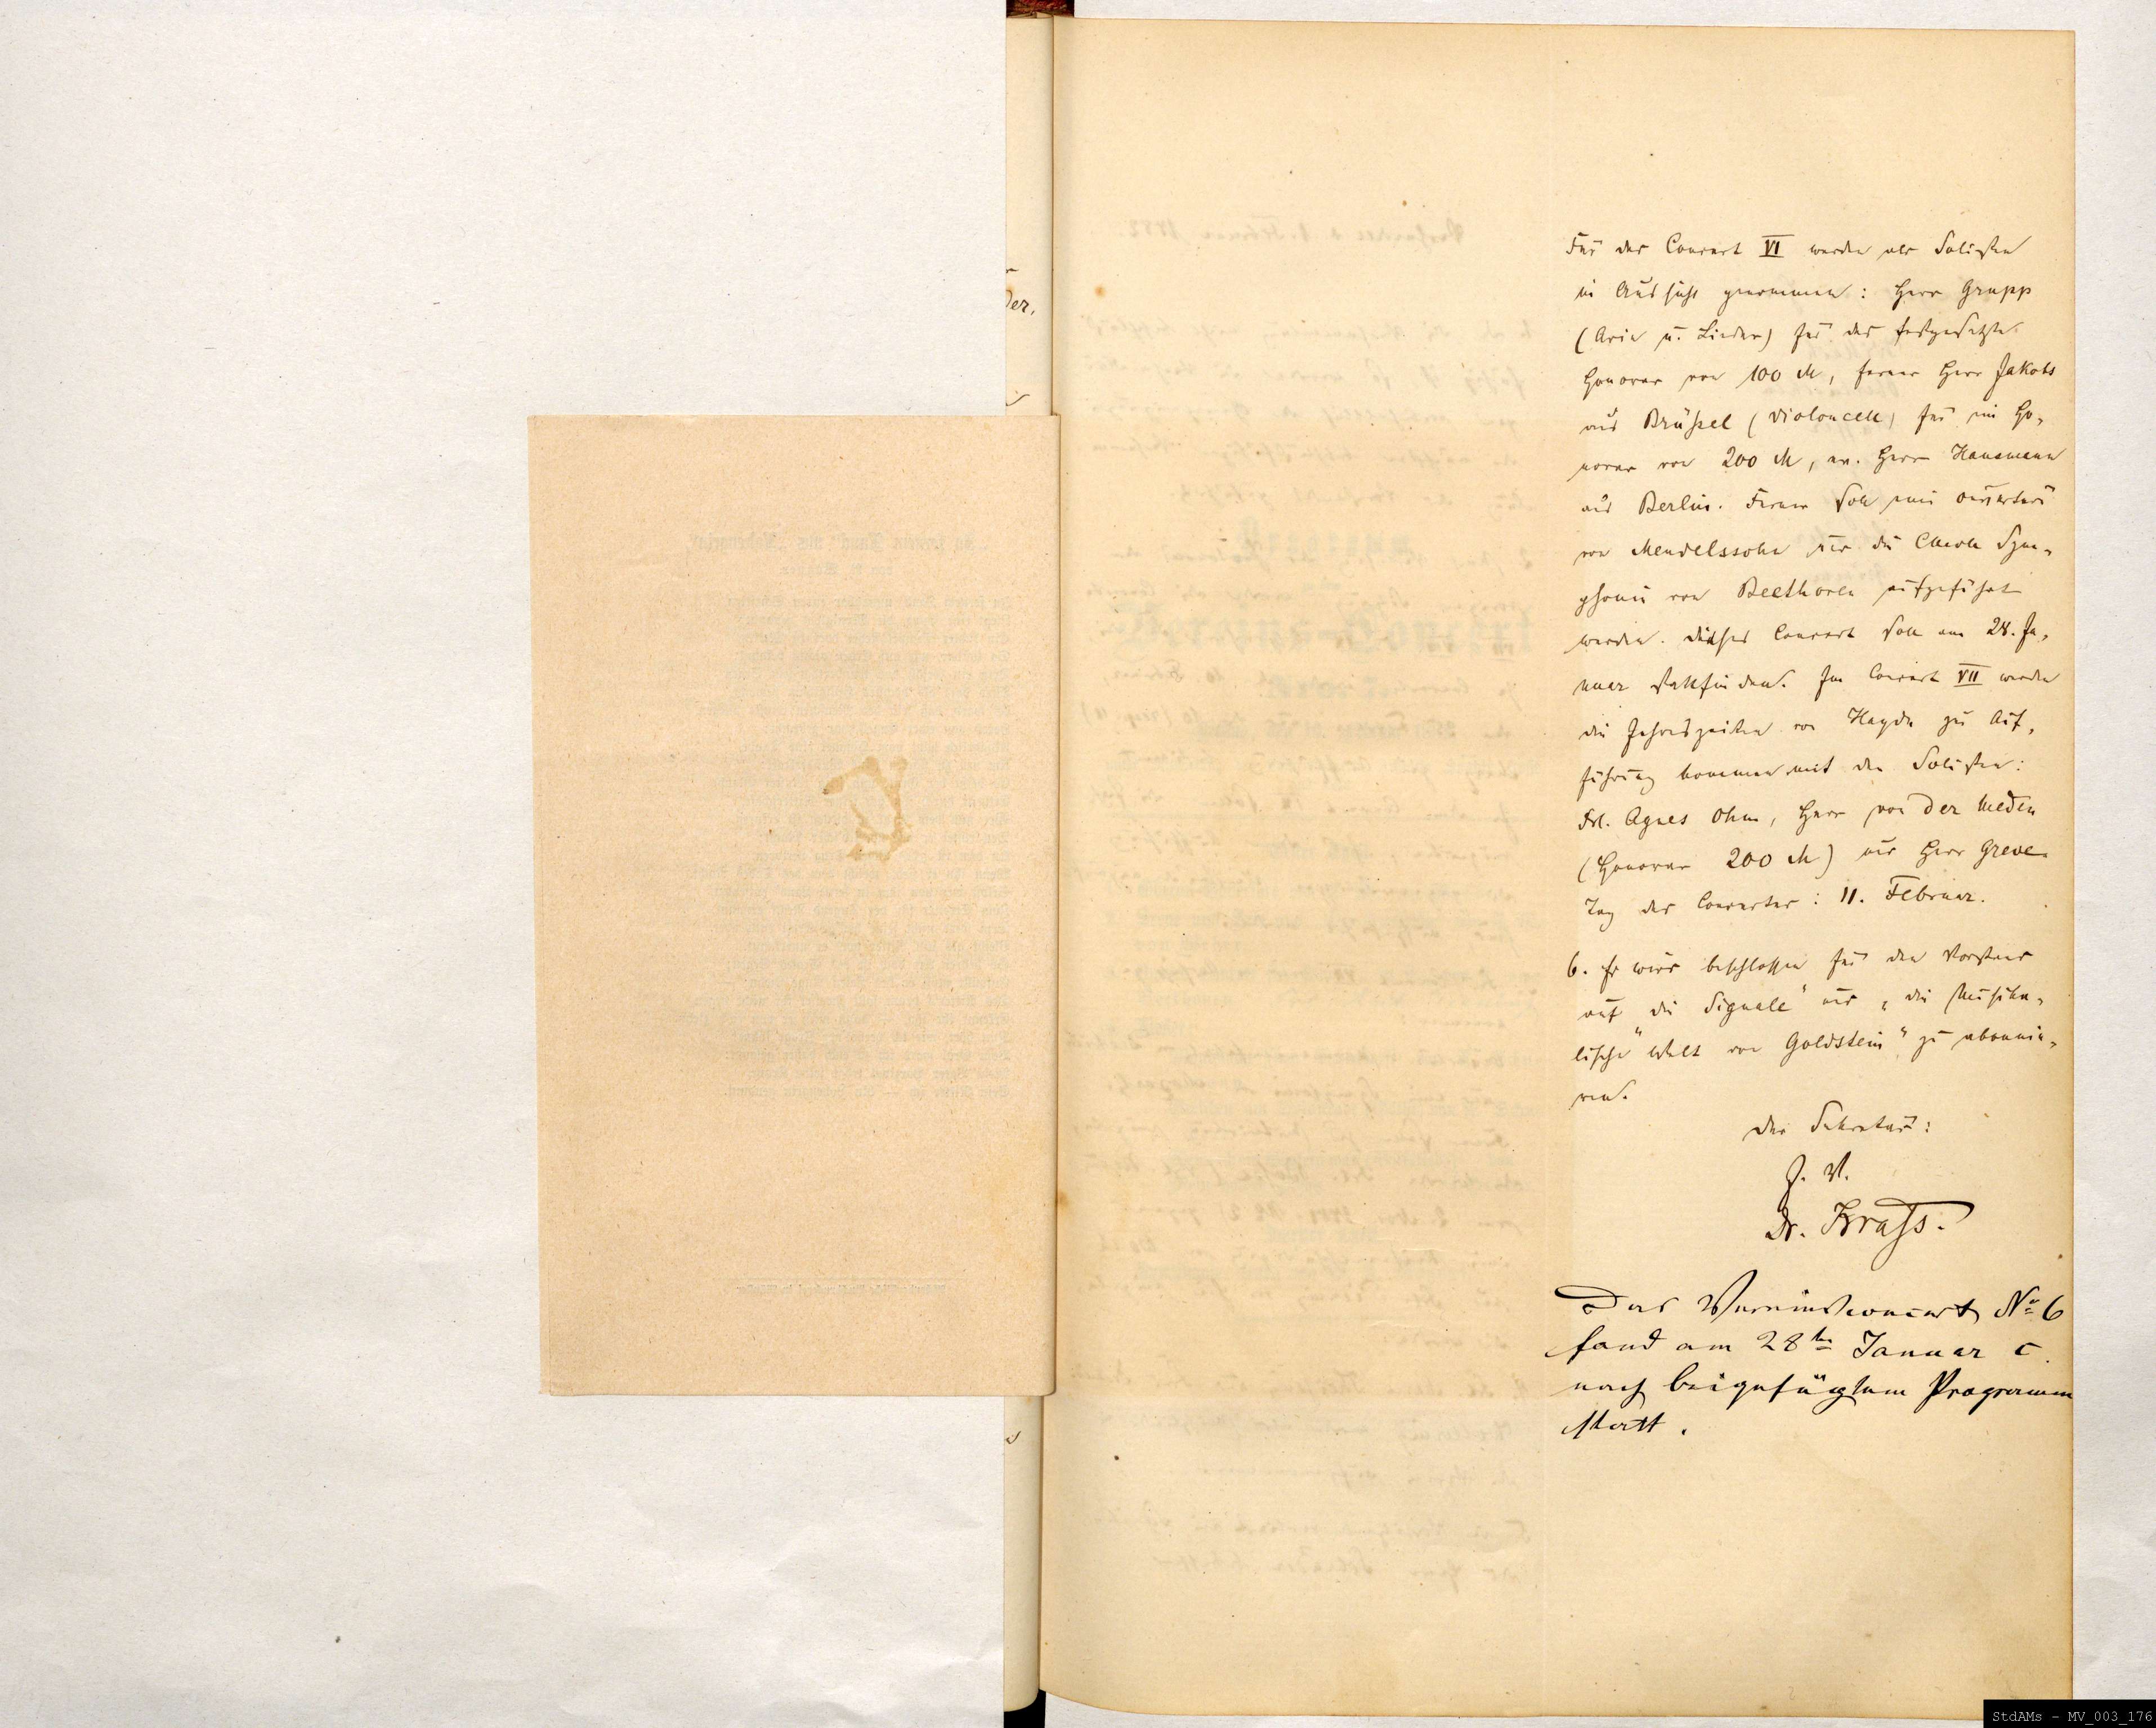 Für das Concert VI werden als Solisten
in Aussicht genommen: Herr Grupp
(Arie u. Lieder) für das festgesetzte
Honorar von 100 M, ferner Herr Jakobs
aus Brüssel (Violoncell) für ein Ho-
norar von 200 M, ev. Herr Hausmann
aus Berlin. Ferner soll eine Ouverture
von Mendelssohn und die C moll Sym-
phonie von Beethoven aufgeführt
werden. Dieses Concert soll am 28. Ja-
nuar stattfinden. Im Concert VII werden
die Jahreszeiten von Haydn zur Auf-
führung kommen mit den Solisten:
Frl. Agnes Ohm, Herr von der Meden
(Honorar 200 M) und Herr Greve.
Tag des Concertes: 11. Februar.
6. Es wird beschlossen für den Vorstand
auf die Signale" und „die Musika-
lische" Welt von Goldstein" zu abonni-
ren.
Der Sekretär:
J. V.
Dr. Krass.
Das Vereinsconcert No 6
fand am 28ten Januar c.
nach beigefügtem Programm
statt.
StdAMs - MV_003_176